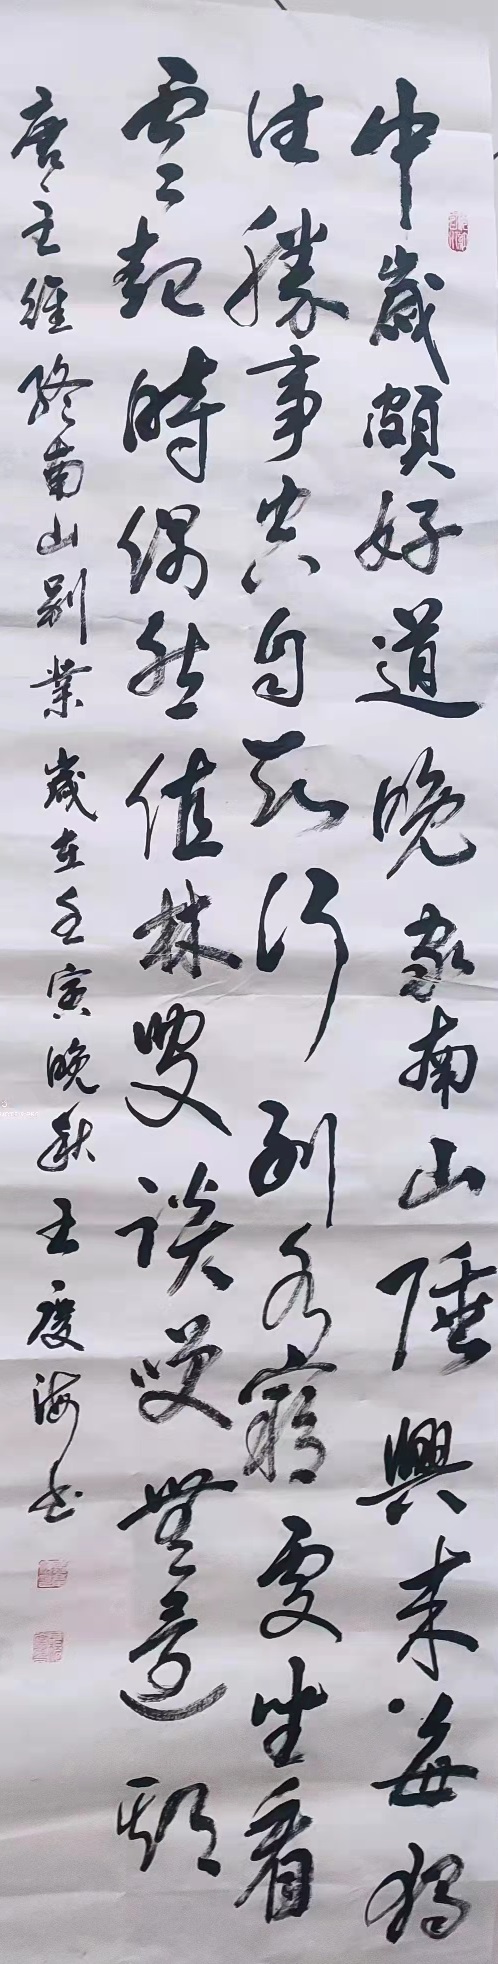 中歲頗好道晚家南山陲興来每獨
往勝事空自知行到水窮處坐看
雲起時偶然值林叟談笑無還期
唐王維終南山别業歲在壬寅晚秋王慶海书